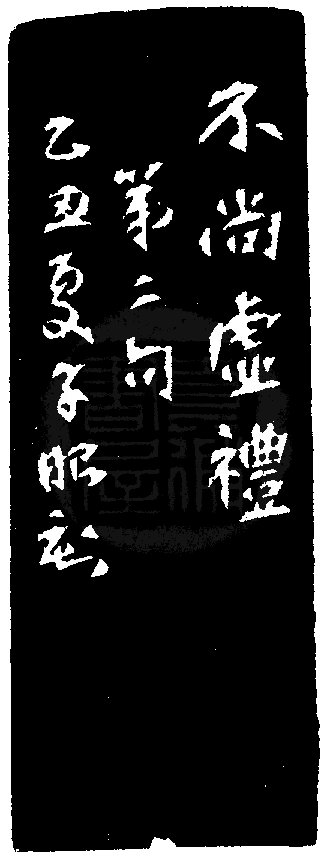 不尚虛禮
第二句
乙丑夏子昭刻